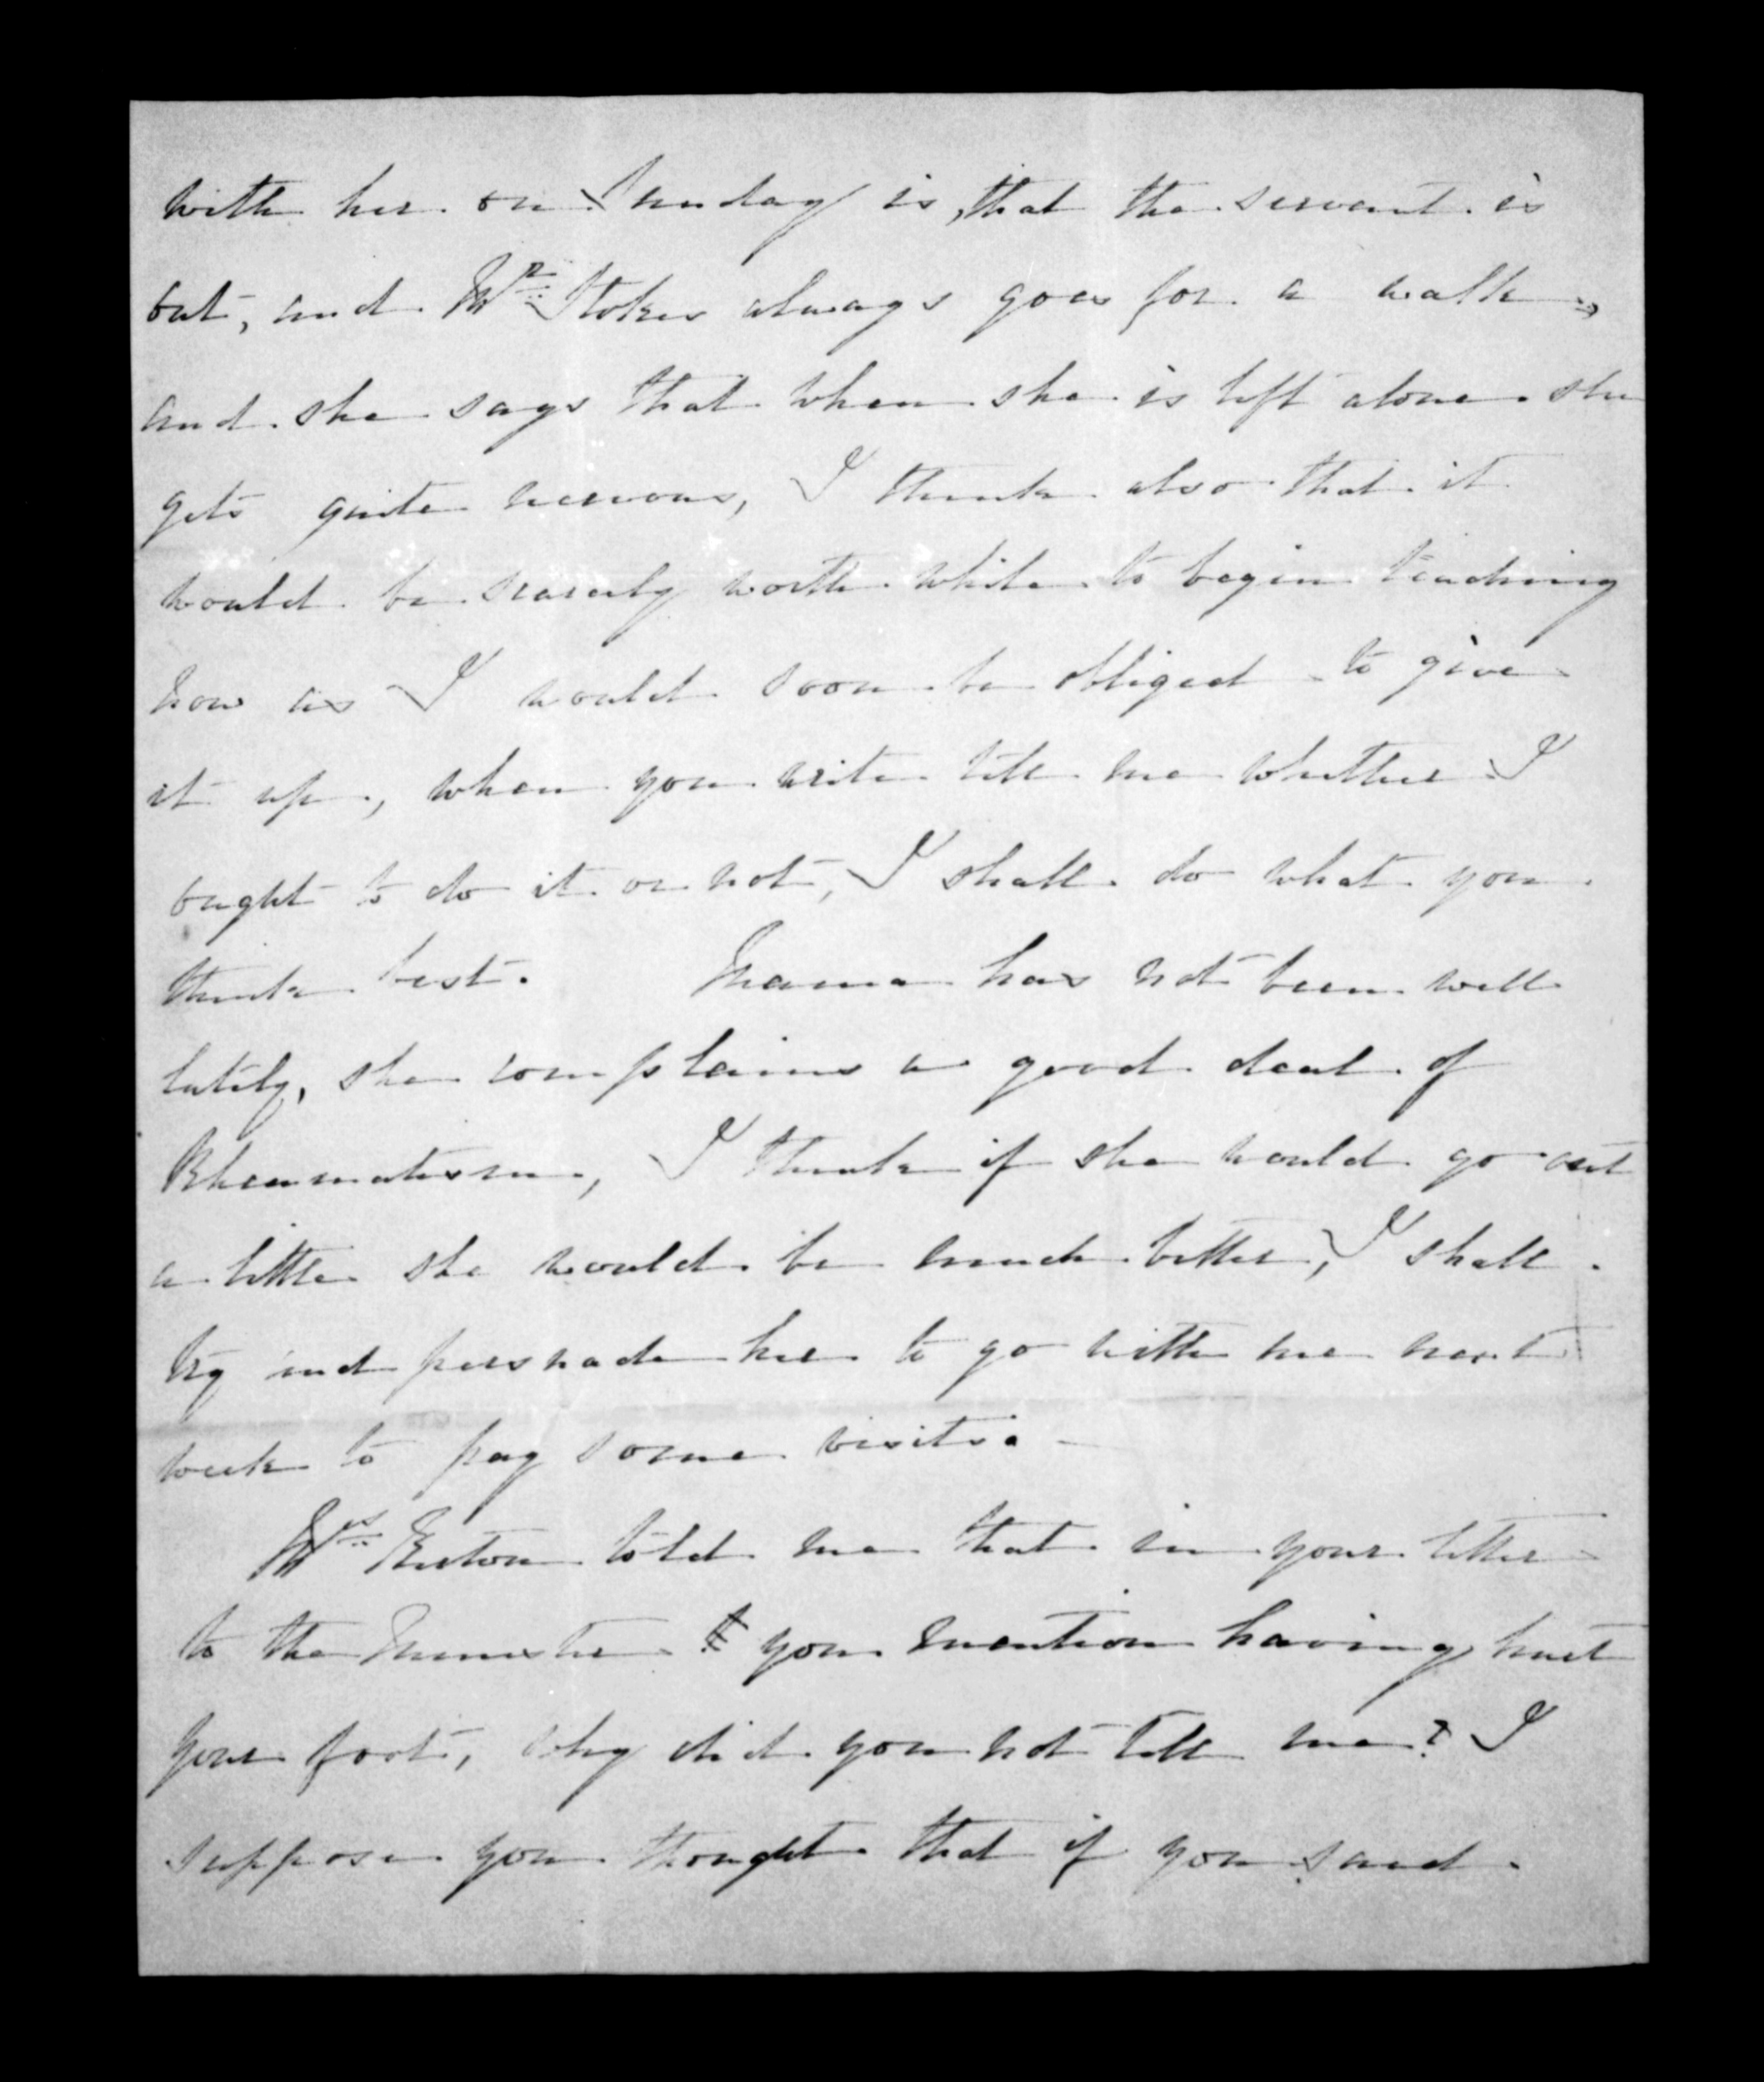 with her on Sunday is, that the servant is
out, and Mr Stokes always goes for a walk,
and she says that when she is left alone she
gets quite nervous, I think also that it
would be scarcely worth while to begin teaching
now as I would soon be obliged to give
it up, when you write tell me whether I
ought to do it or not, I shall do what you
think best. Mama has not been well
lately, she complains a good deal of
Rheumatism, I think if she would go out
a little she would be much better, I shall
try and persuade her to go with me next
week to pay some visits.
Mrs told me that in your letter
to the Minister you mention having hurt
your foot, why did you not tell me? I
suppose you thought that if you said